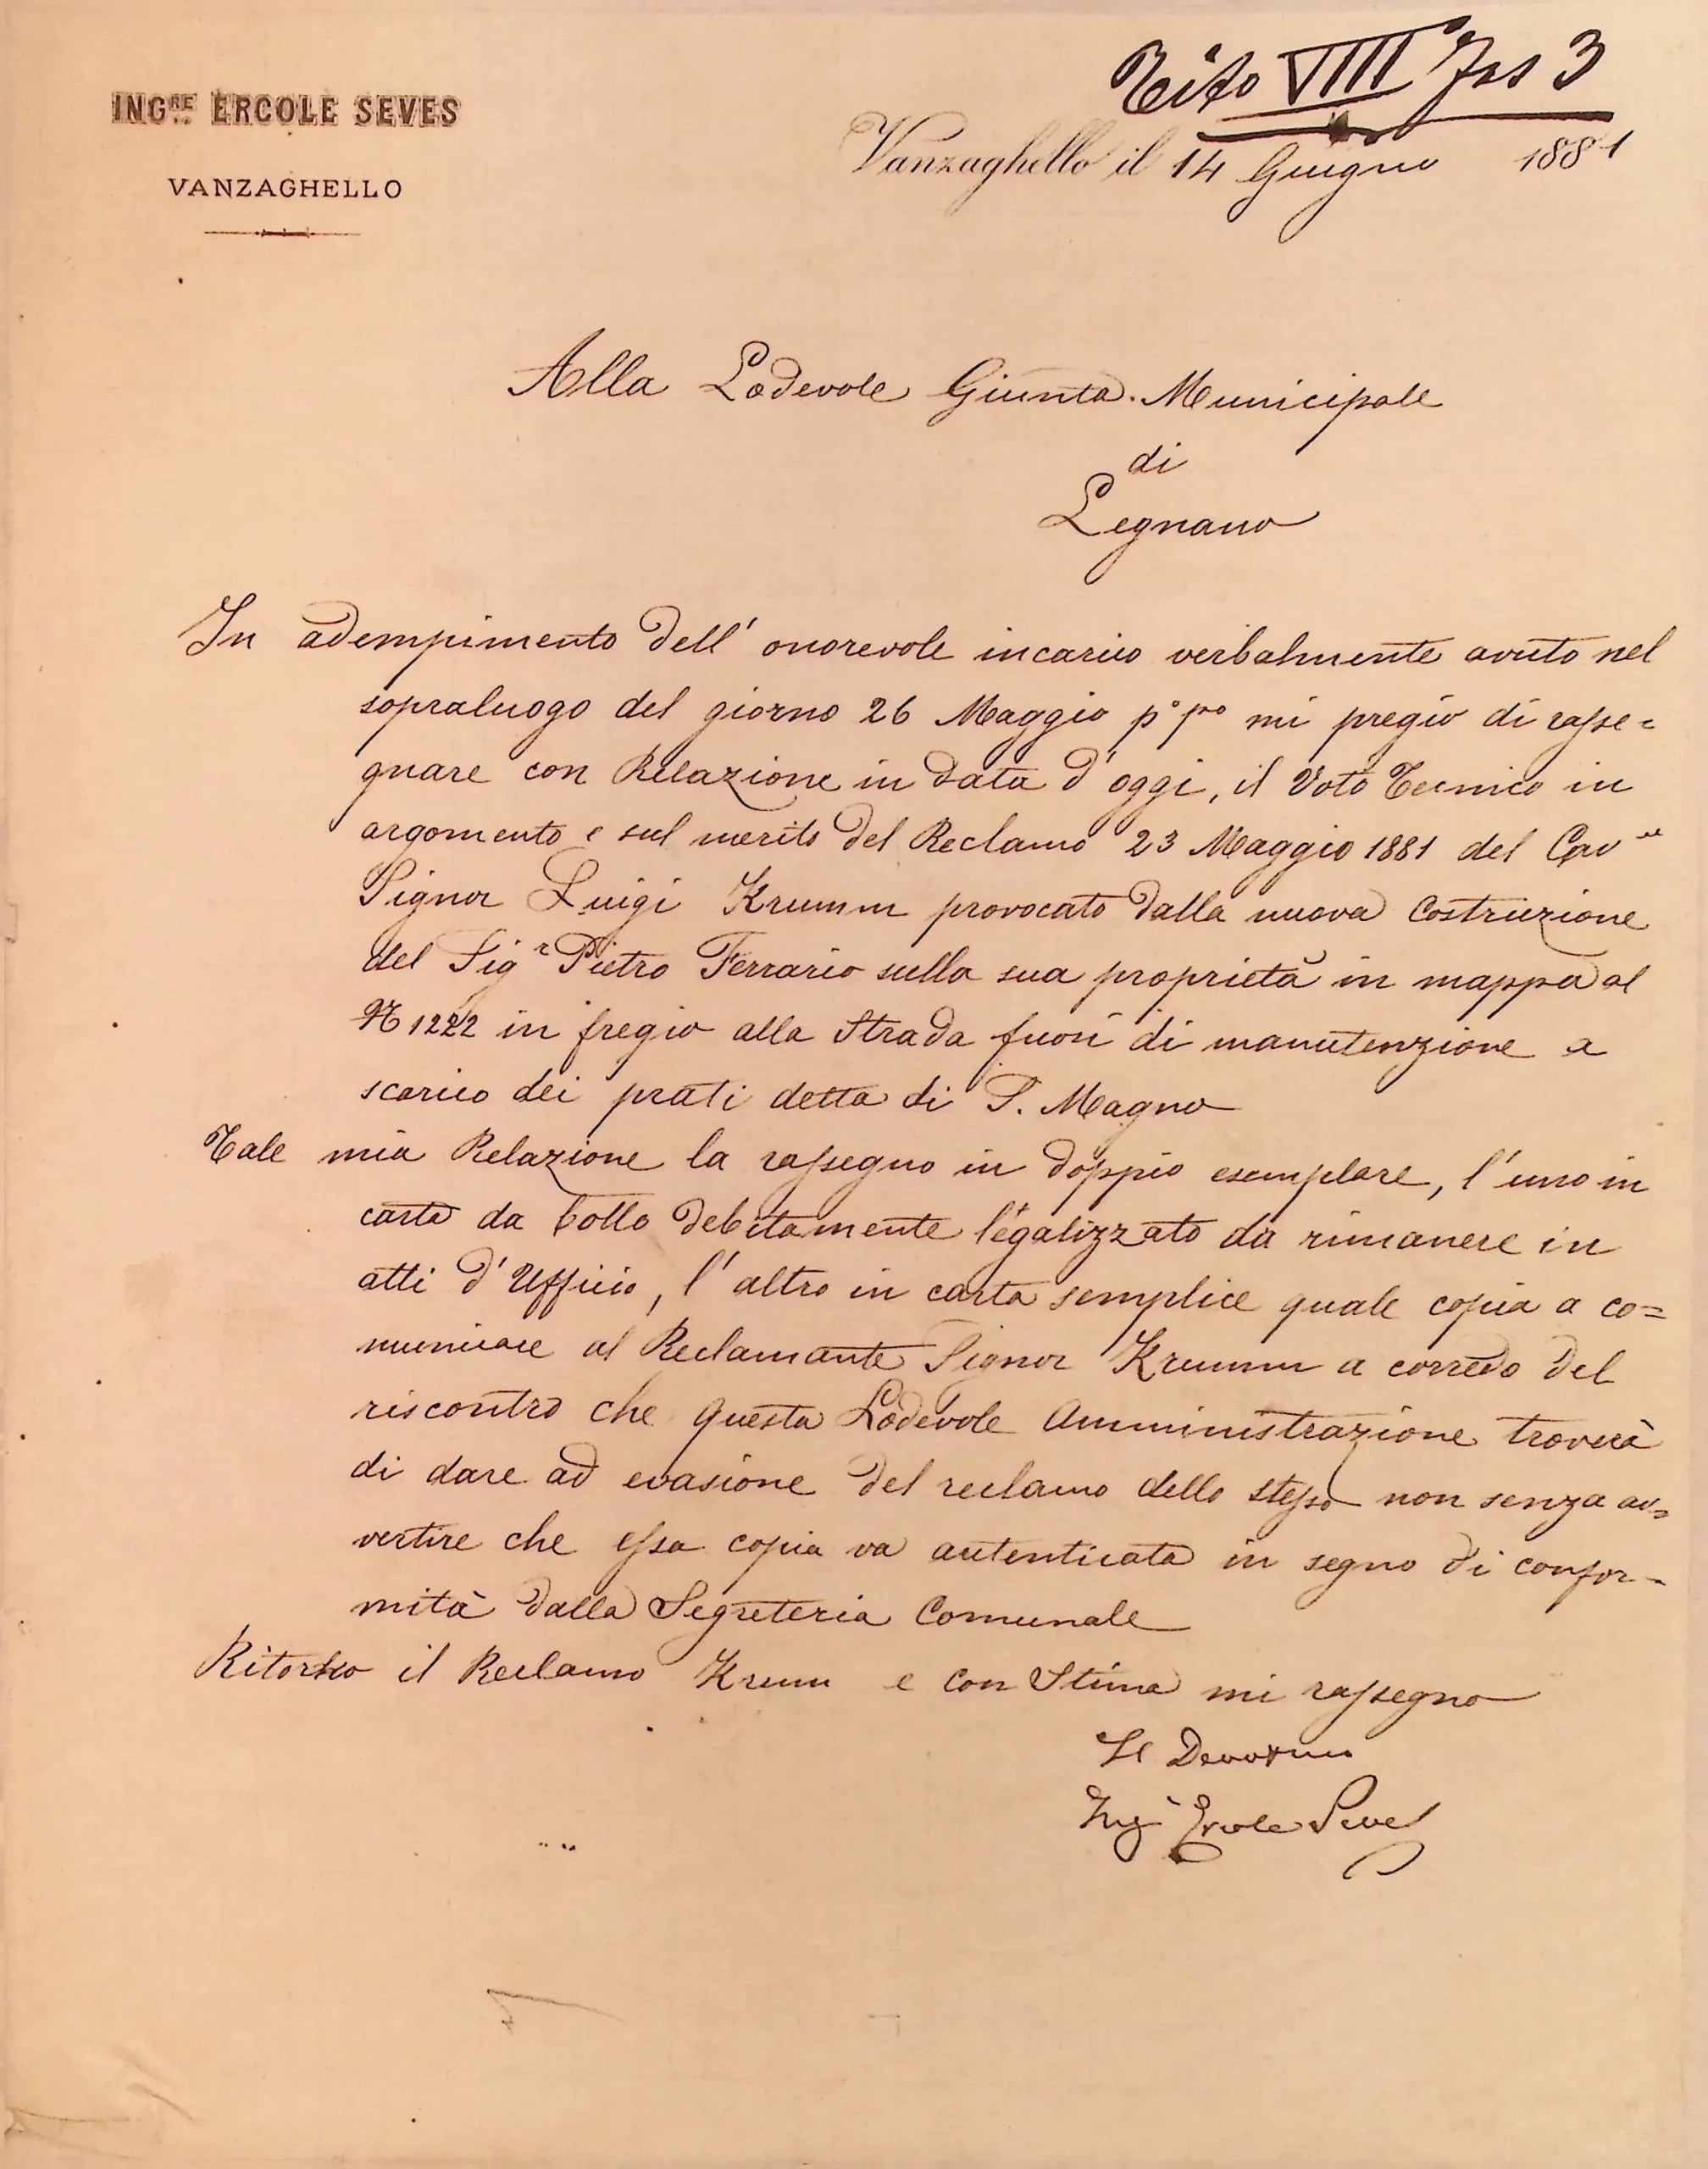 Tito VIII Fas 3
INGRE ERCOLE SEVES
VANZAGHELLO
Vanzaghello il 14 Giugno 1881
Alla Lodevole Giunta Municipale
di
Legnano
In adempimento dell' onorevole incarico verbalmente avuto nel
sopraluogo del giorno 26 Maggio p° p° mi pregio di rasse=
gnare con Relazione in data d' oggi, il Voto Tecnico in
argomento e sul merito del Reclamo 23 Maggio 1881 del Cav.re
Signor Luigi Krumm provocato dalla nuova Costruzione
del Sigr Pietro Ferrario sulla sua proprietà in mappa al
N 1222 in fregio alla Strada fuori di manutenzione a
scarico dei prati detta di S. Magno
Tale mia Relazione la rassegno in doppio esemplare, l' uno in
carta da bollo debitamente legalizzato da rimanere in
atti d' Ufficio, l' altro in carta semplice quale copia a co=
municare al Reclamante Signor Krumm a corredo del
riscontro che questa Lodevole Amministrazione troverà
di dare ad evasione del reclamo dello stesso non senza av=
vertire che essa copia va autenticata in segno di confor=
mità dalla Segreteria Comunale
Ritorno il Reclamo Krum e con Stima mi rassegno
Il Devotmo
Ing Ercole Seves